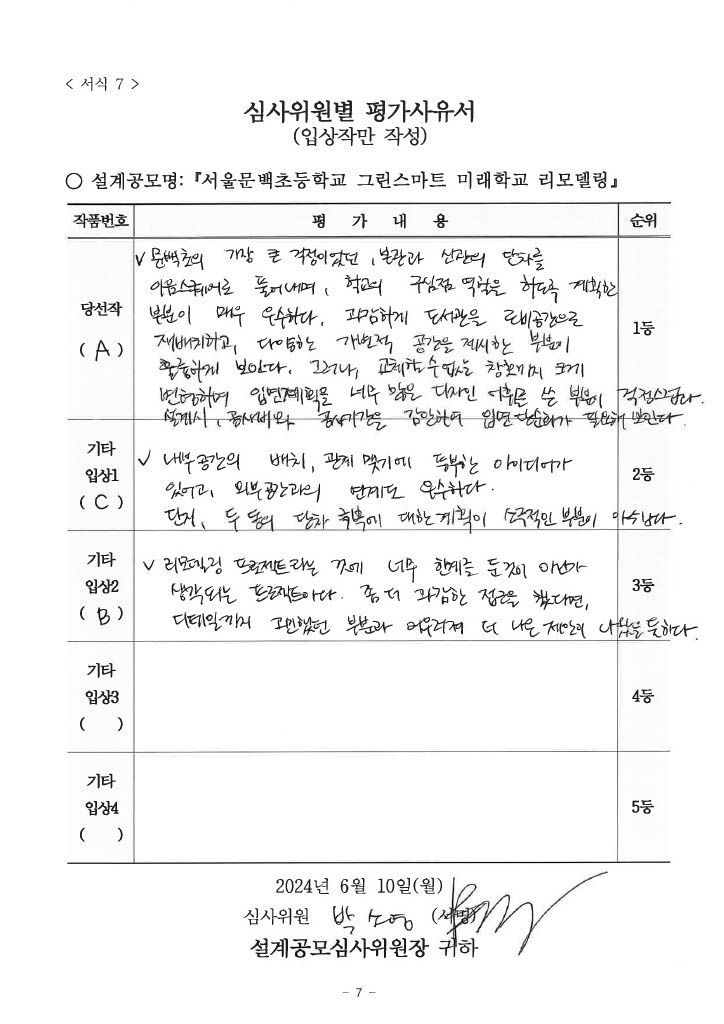 < 서식 7 >
심사위원별 평가사유서
(입상작만 작성)
○ 설계공모명: 『서울문백초등학교 그린스마트 미래학교 리모델링』
작품번호 평 가 내 용 순위
당선작
( A )
✓ 문백초의 가장 큰 걱정이었던, 본관과 신관의 단차를
이음스퀘어로 풀어내며, 학교의 구심점 역할을 하도록 계획한
부분이 매우 우수하다. 과감하게 도서관을 로비공간으로
재배치하고, 다양한 가변적 공간을 제시한 부분이
훌륭하게 보인다. 그러나, 교체할 수 없는 창호까지 크게
변형하며 입면계획을 너무 많은 디자인 어휘를 쓴 부분이 걱정스럽다.
설계시, 공사비와 공사기간을 감안하여 입면 단순화가 필요해 보인다.
1등
기타
입상1
( C )
✓ 내부공간의 배치, 관계 맺기에 풍부한 아이디어가
있어고, 외부공간과의 연계도 우수하다.
단지, 두 동의 단차 극복에 대한 계획이 소극적인 부분이 아쉽다.
2등
기타
입상2
( B )
✓ 리모델링 프로젝트라는 것에 너무 한계를 둔것이 아닌가
생각되는 프로젝트이다. 좀 더 과감한 접근을 했다면,
디테일까지 고민했던 부분과 어우러져 더 나은 제안이 나왔을 듯하다.
3등
기타
입상3
( )
4등
기타
입상4
( )
5등
2024년 6월 10일(월)
심사위원 박소영 (서명)
설계공모심사위원장 귀하
- 7 -